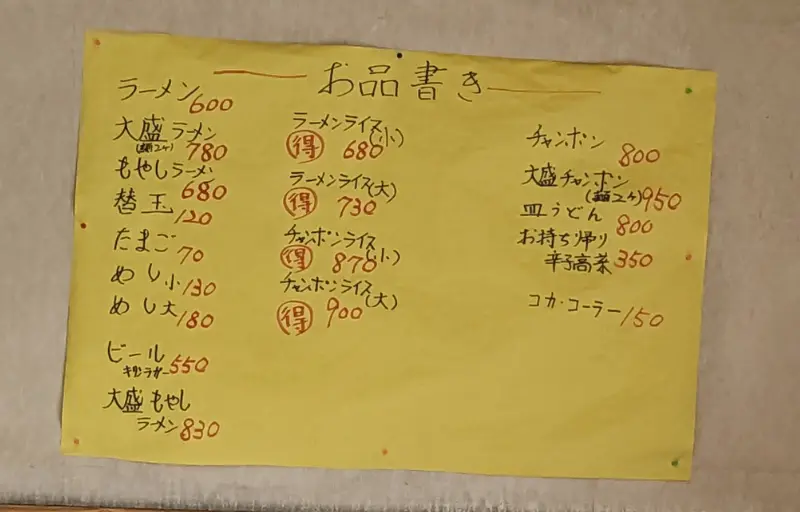 お品書き
ラーメン 600
大盛ラーメン
(麺2ケ) 780
もやしラーメン
680
替玉 120
たまご 70
めし小 130
めし大 180
ビール
キリンラガー 550
大盛もやし
ラーメン 830
ラーメンライス(小)
得 680
ラーメンライス(大)
得 730
チャンポンライス(小)
得 870
チャンポンライス(大)
得 900
チャンポン 800
大盛チャンポン
(麺2ケ) 950
皿うどん 800
お持ち帰り
辛子高菜 350
コカ・コーラー 150